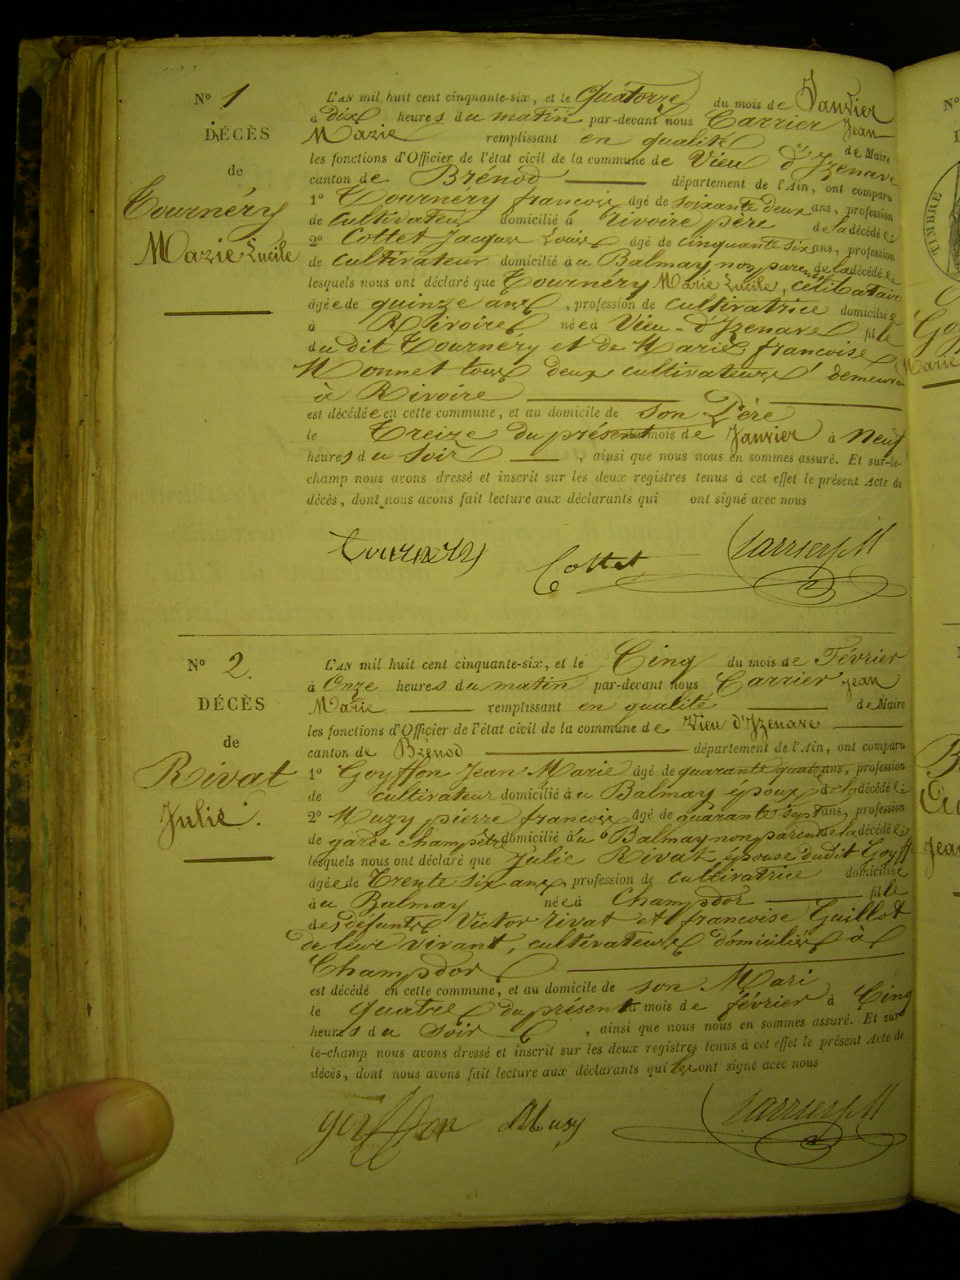 N° 1
DÉCÈS
de
Tournéry
Marie Lucile
L'AN mil huit cent cinquante-six, et le Quatorze du mois de Janvier
à dix heures du matin par-devant nous Carrier Jean
Marie remplissant en qualité de Maire
les fonctions d'Officier de l'état civil de la commune de Vieu d'Izenave
canton de Brénod département de l'Ain, ont comparu
1° Tournery françois âgé de soixante deux ans, profession
de cultivateur domicilié à Rivoire père de la décédée
2° Cottet Jacques Louis âgé de cinquante six ans, profession
de cultivateur domicilié à u Balmay, non parent de la décédée
lesquels nous ont déclaré que Tournéry Marie Lucile, célibataire
âgée de quinze ans, profession de cultivatrice domiciliée
à Rivoire née à Vieu-d'Izenave fille
du dit Tournéry et de Marie francoise
Monnet tous deux cultivateurs demeurant
à Rivoire
est décédée en cette commune, et au domicile de son Père
le Treize du présent mois de Janvier à neuf
heures du soir, ainsi que nous nous en sommes assuré. Et sur-le-
champ nous avons dressé et inscrit sur les deux registres tenus à cet effet le présent Acte de
décès, dont nous avons fait lecture aux déclarants qui ont signé avec nous
Tournery Cottet Carrier JM
N° 2.
DÉCÈS
de
Rivat
Julie.
L'AN mil huit cent cinquante-six, et le Cinq du mois de Février
à Onze heures du matin par-devant nous Carrier Jean
Marie remplissant en qualité de Maire
les fonctions d'Officier de l'état civil de la commune de Vieu d'Izenave
canton de Brénod département de l'Ain, ont comparu
1° Goyffon Jean Marie âgé de quarante quatre ans, profession
de cultivateur domicilié à u Balmay époux de la décédée
2° Muzy pierre françois âgé de quarante sept ans, profession
de garde champêtre domicilié à u Balmay non parent de la décédée
lesquels nous ont déclaré que Julie Rivat épouse dudit Goyff
âgée de Trente six ans, profession de cultivatrice domiciliée
à u Balmay née à Champdor fille
des défunts Victor rivat et francoise Guillot
de leur vivant, cultivateurs domiciliés à
Champdor
est décédé en cette commune, et au domicile de son Mari
le quatre du présent mois de février à Cinq
heures du soir, ainsi que nous nous en sommes assuré. Et sur-
le-champ nous avons dressé et inscrit sur les deux registres tenus à cet effet le présent Acte de
décès, dont nous avons fait lecture aux déclarants qui ont signé avec nous
goiffon Musy Carrier JM
TIMBRE